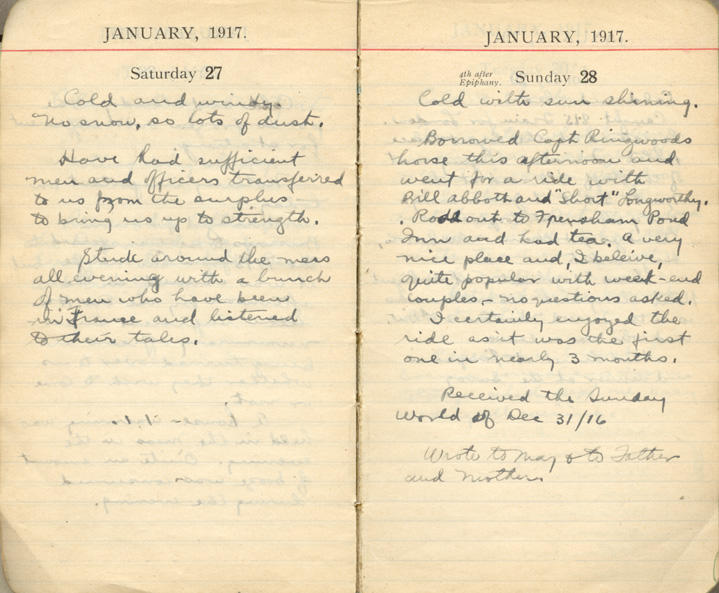 JANUARY, 1917.
Saturday 27
Cold and windy.
No snow, so lots of dust.
Have had sufficient
men and officers transferred
to us from the surplus
to bring us up to strength.
Stuck around the mess
all evening with a bunch
of men who have been
in France and listened
to their tales.
JANUARY, 1917.
4th after
Epiphany. Sunday 28
Cold with sun shining.
Borrowed Capt Ringwoods
horse this afternoon and
went for a ride with
Bill abbott and "Short" Longworthy.
. Rode out to Frensham Pond
Inn and had tea. A very
nice place and, I beleive,
quite popular with week-end
couples, – no questions asked.
I certainly enjoyed the
ride as it was the first
one in nearly 3 months.
Received the Sunday
World of Dec 31/16
Wrote to May & to Father
and Mother.